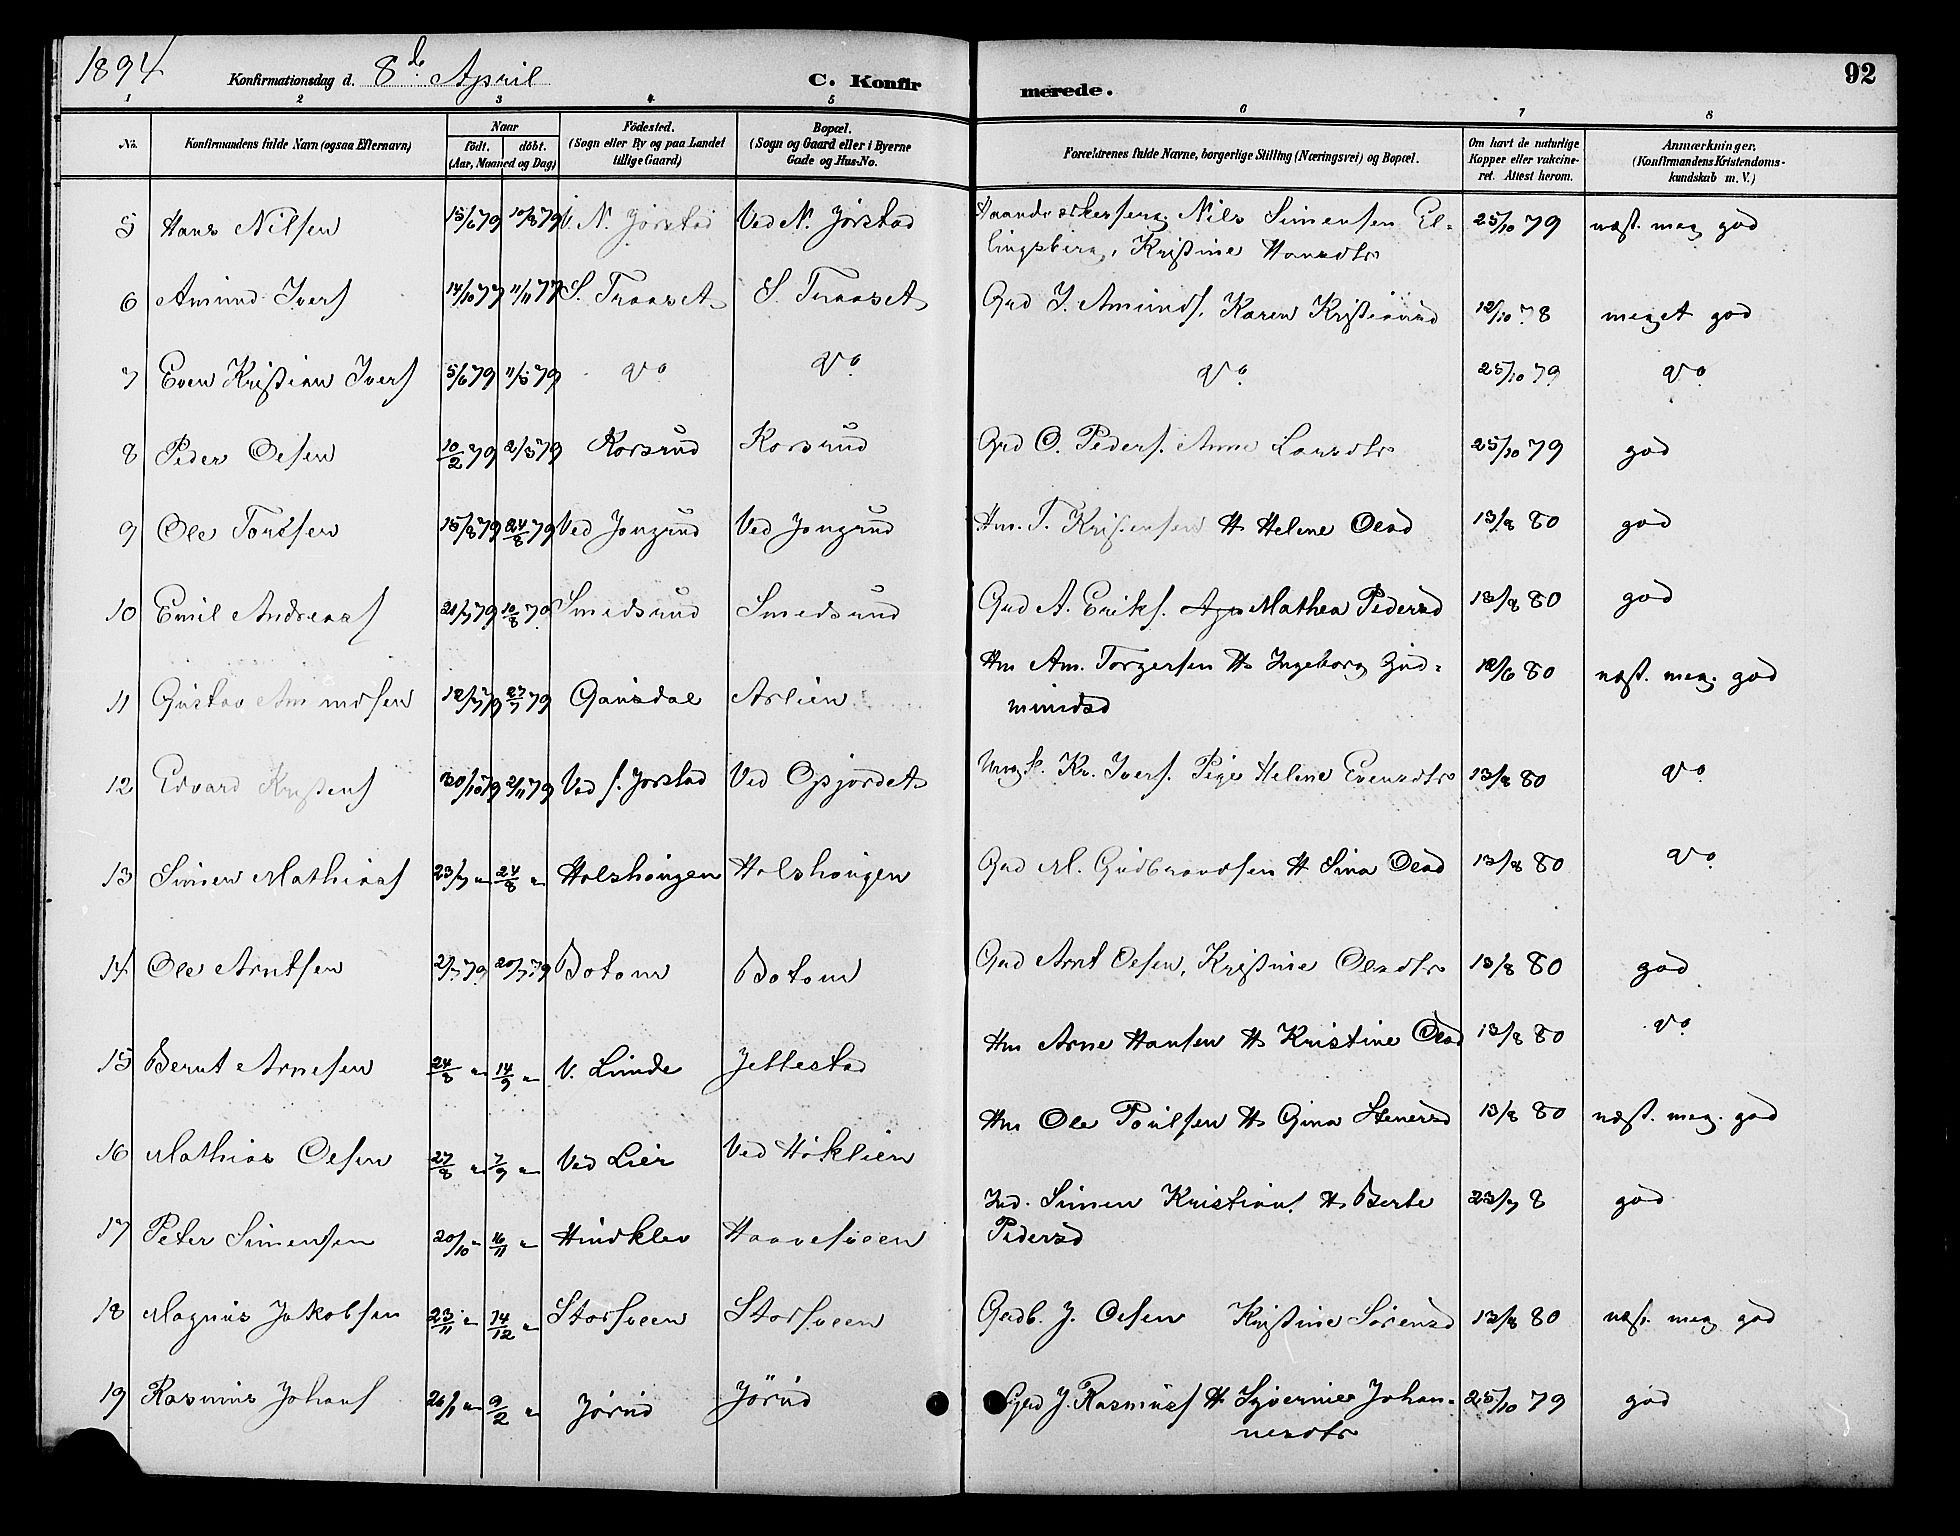 1894 Konfirmationsdag d. 8de April C. Konfirmerede. 92
1 2 3 4 5 6 7 8
No. Konfirmandens fulde Navn (ogsaa Efternavn) Naar Födt. döbt. (Aar, Maaned og Dag) Födested. (Sogn eller By og paa Landet tillige Gaard) Bopæl. (Sogn og Gaard eller i Byerne Gade og Hus-No. Forældrenes fulde Navne, borgerlige Stilling (Næringsvei) og Bopæl. Om havt de naturlige Kopper eller vakcineret. Attest herom. Anmærkninger. (Konfirmandens Kristendomskundskab m. V.)
5 Hans Nilsen 15/6 79 10/8 79 V. N. Jörstad Ved N. Jörstad Nils Simensen El-
lingsberg, Kristine Hansdtr 25/10 79 næst. meg god
6 Amund Ivers 14/10 77 11/11 77 S. Traaset S. Traaset Grd I. Amunds. Karen Kristiansd 12/10 78 meget god
7 Even Kristian Ivers 5/6 79 79 do do do 25/10 79 do
8 Peder Olsen 10/2 79 2/3 79 Korsrud Korsrud Grd O. Peders. Anne Larsdtr 25/10 79 god
9 Ole Torstsen 15/8 79 24/8 79 Ved Jongrud Ved Jongrud Hm. T. Kristensen H Helene Olsd 13/8 80 god
10 Emil Andreass 21/7 79 10/8 79 Smedsrud Smedsrud Grd A. Eriks. Mathea Pedersd 13/8 80 god
11 Gustav Amundsen 12/7 79 27/7 79 Gausdal Aslien Hm Am. Torgersen H Ingeborg Gud-
mundsd 12/6 80 næst. meg. god
12 Edvard Kristens 20/10 79 2/11 79 Ved S. Jorstad Ved Opsjordet Ungk. Kr. Ivers. Pige Helene Evensdtr 13/8 80 do
13 Simen Mathiass 23/7 " 24/8 " Holshaugen Holshaugen Grd M. Gudbrandsen H Sina Olsd 13/8 80 do
14 Ole Arntsen 2/7 79 20/7 79 Botom Botom Grd Arnt Olsen, Kristine Olsdtr 13/8 80 god
15 Bernt Arnesen 24/8 " 14/9 " V. Linde Jettestad Hm Arne Hansen H Kristine Olsd 13/8 80 do
16 Mathias Olsen 27/8 " 7/9 " Ved Lier Ved Höklien Hm Ole Poulsen H Gina Stenersd 13/8 80 næst. meg. god
17 Peter Simensen 20/10 " 16/11 " Hindklev Haavesveen Ind. Simen Kristians. H Berte
Pedersd 23/7 8 god
18 Magnus Jakobsen 23/11 " 14/12 " Storsveen Storsveen Grdb. J. Olsen Kristine Sörensd 13/8 80 næst. meg god
19 Rasmus Johans 26/1 " 9/2 " Jörud Jörud Grd J. Rasmuss H Syverine Johan-
nesdtr 25/10 79 god